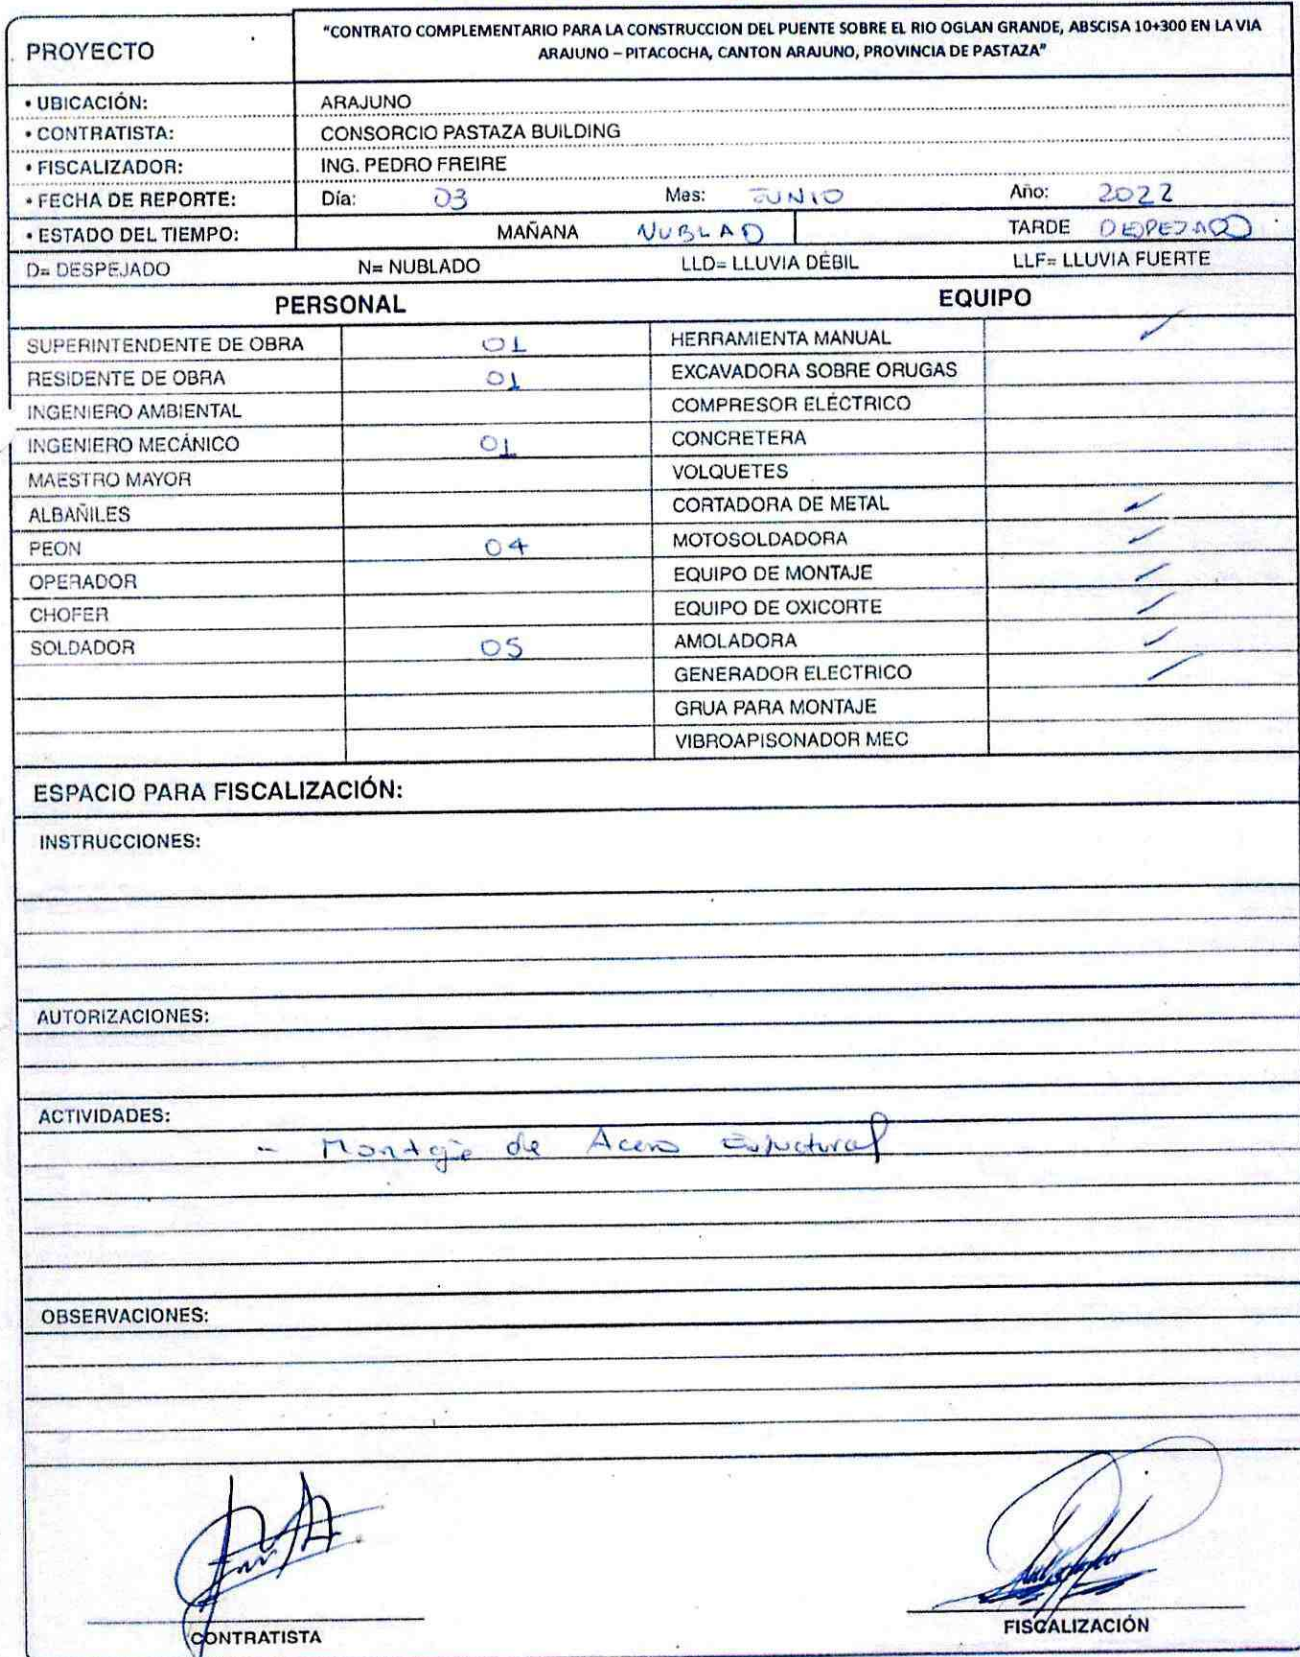 PROYECTO
"CONTRATO COMPLEMENTARIO PARA LA CONSTRUCCION DEL PUENTE SOBRE EL RIO OGLAN GRANDE, ABSCISA 10+300 EN LA VIA
ARAJUNO – PITACOCHA, CANTON ARAJUNO, PROVINCIA DE PASTAZA"
• UBICACIÓN: ARAJUNO
• CONTRATISTA: CONSORCIO PASTAZA BUILDING
• FISCALIZADOR: ING. PEDRO FREIRE
• FECHA DE REPORTE: Día: 03 Mes: JUNIO Año: 2022
• ESTADO DEL TIEMPO: MAÑANA NUBLAD TARDE DEPEJADO
D= DESPEJADO N= NUBLADO LLD= LLUVIA DÉBIL LLF= LLUVIA FUERTE
PERSONAL EQUIPO
SUPERINTENDENTE DE OBRA 01 HERRAMIENTA MANUAL ✓
RESIDENTE DE OBRA 01 EXCAVADORA SOBRE ORUGAS
INGENIERO AMBIENTAL COMPRESOR ELÉCTRICO
INGENIERO MECÁNICO 01 CONCRETERA
MAESTRO MAYOR VOLQUETES
ALBAÑILES CORTADORA DE METAL ✓
PEON 04 MOTOSOLDADORA ✓
OPERADOR EQUIPO DE MONTAJE ✓
CHOFER EQUIPO DE OXICORTE ✓
SOLDADOR 05 AMOLADORA ✓
GENERADOR ELECTRICO ✓
GRUA PARA MONTAJE
VIBROAPISONADOR MEC
ESPACIO PARA FISCALIZACIÓN:
INSTRUCCIONES:
AUTORIZACIONES:
ACTIVIDADES:
- Montaje de Acero Estructural
OBSERVACIONES:
CONTRATISTA FISCALIZACIÓN